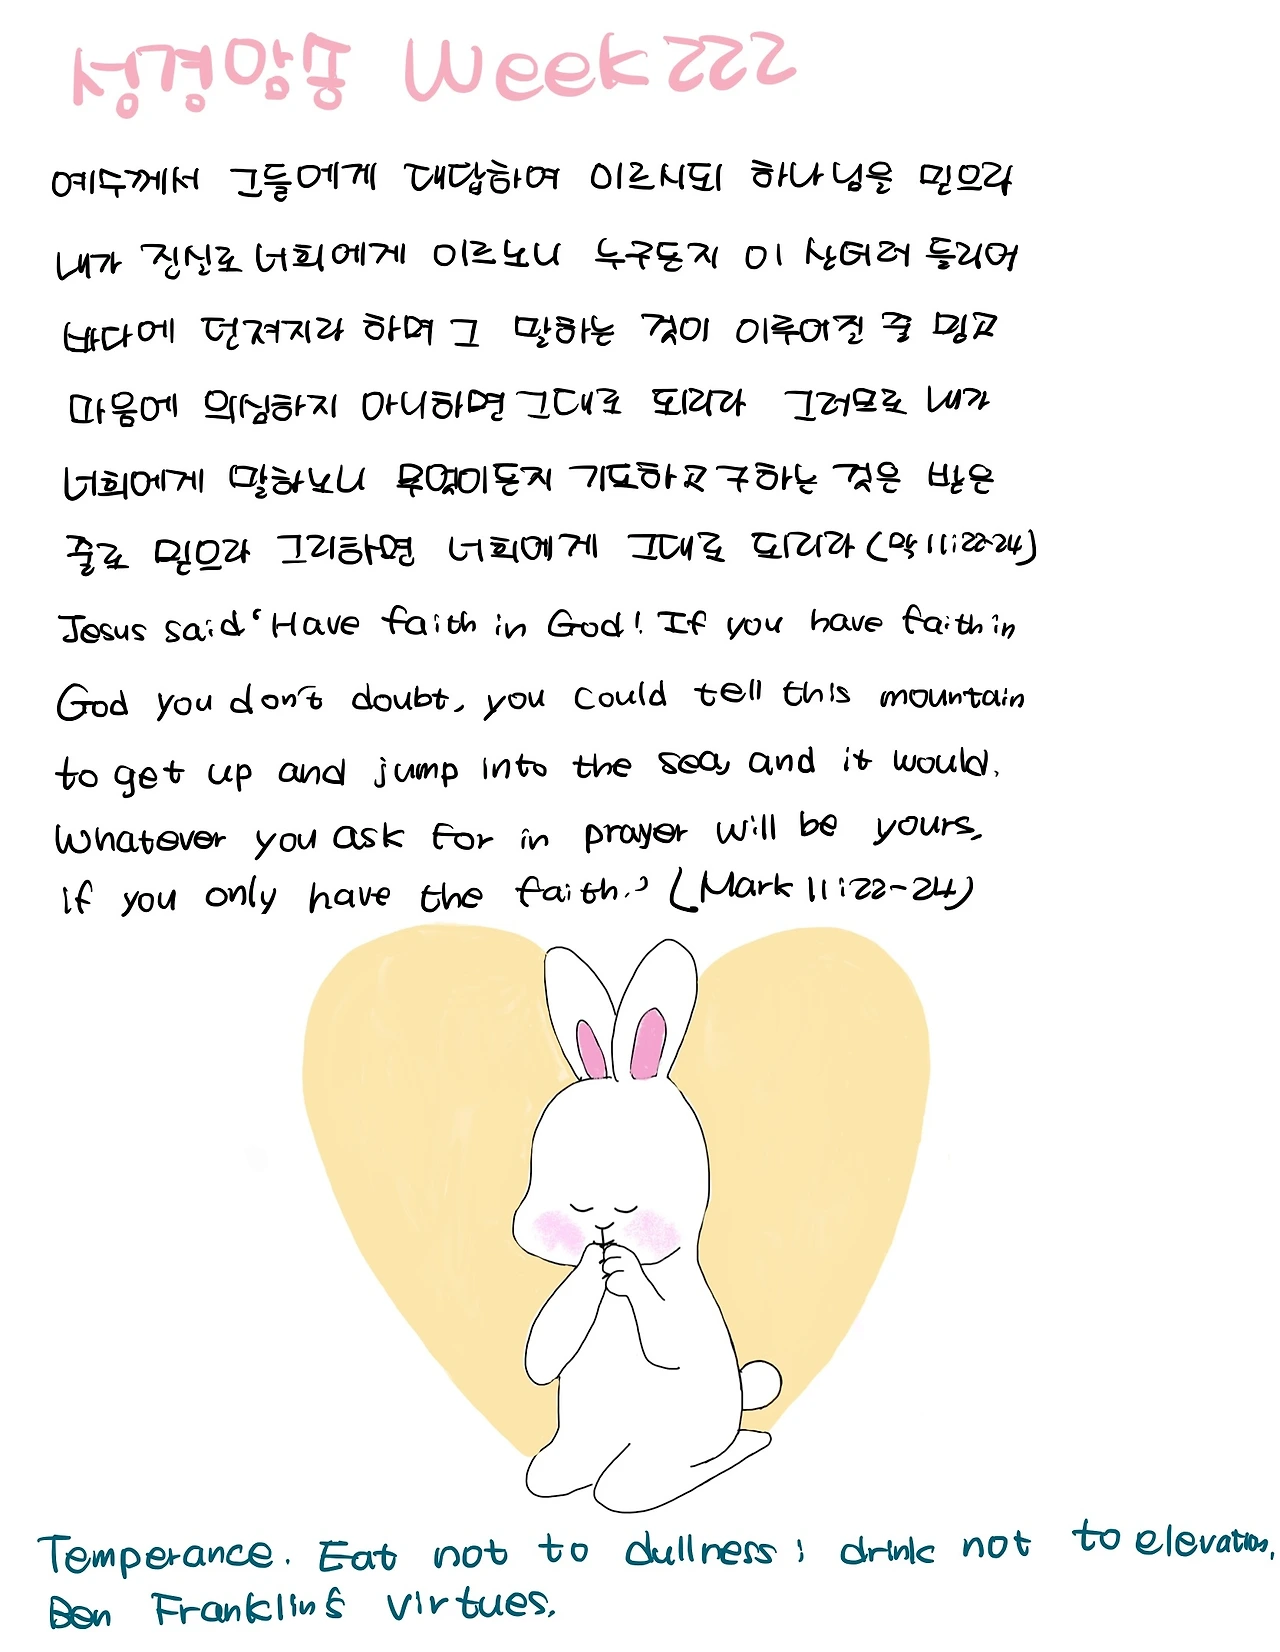 성경암송 Week 222
예수께서 그들에게 대답하여 이르시되 하나님을 믿으라
내가 진실로 너희에게 이르노니 누구든지 이 산더러 들리어
바다에 던져지라 하며 그 말하는 것이 이루어질 줄 믿고
마음에 의심하지 아니하면 그대로 되리라 그러므로 내가
너희에게 말하노니 무엇이든지 기도하고 구하는 것은 받은
줄로 믿으라 그리하면 너희에게 그대로 되리라 (막 11:22-24)
Jesus said 'Have faith in God! If you have faith in
God you don't doubt, you could tell this mountain
to get up and jump into the sea, and it would.
Whatever you ask for in prayer will be yours,
if you only have the faith.' (Mark 11:22-24)
Temperance. Eat not to dullness; drink not to elevation.
Ben Franklin's virtues.